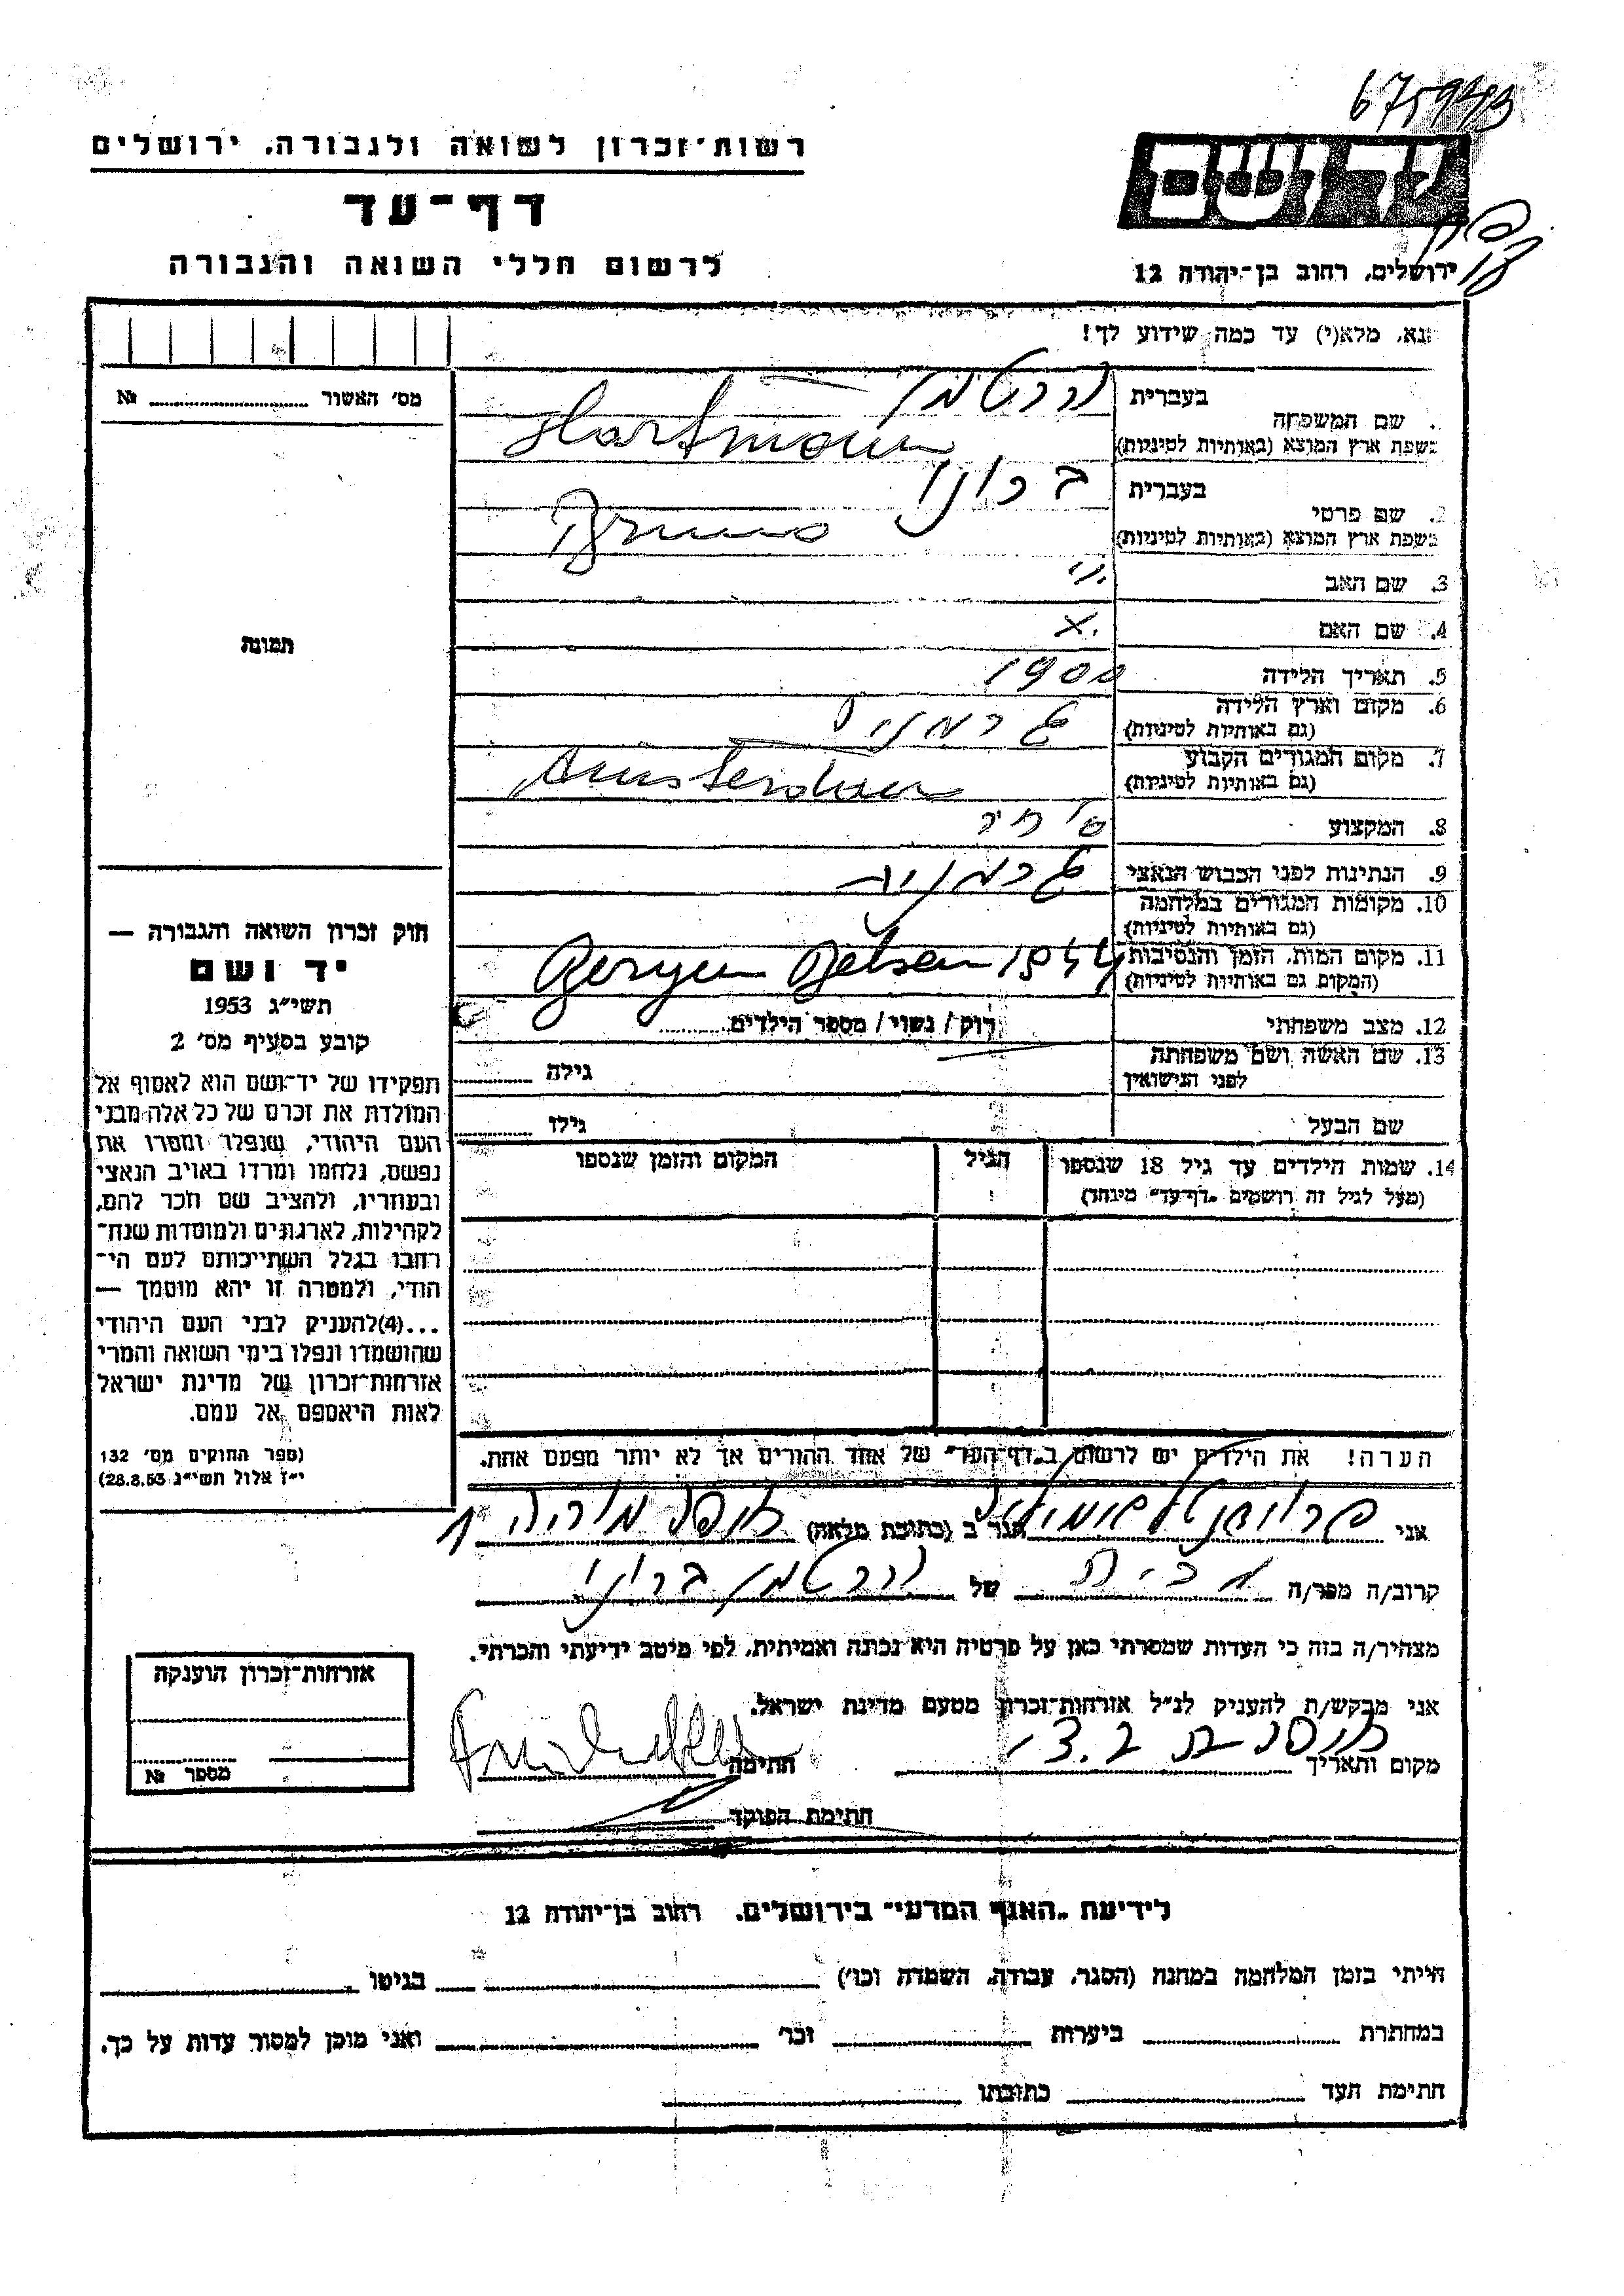 675943
רשות־זכרון לשואה ולגבורה, ירושלים
יד ושם
דף־עד
לרשום חללי השואה והגבורה
ירושלים, רחוב בן־יהודה 12
נא, מלא(י) עד כמה שידוע לך!
מס׳ האשור № 
בעברית הרטמן
שם המשפחה
בשפת ארץ המוצא (באותיות לטיניות) Hartmann
בעברית ברונו
2. שם פרטי
בשפת ארץ המוצא (באותיות לטיניות) Bruno
3. שם האב
4. שם האם x.
5. תאריך הלידה 1900
6. מקום וארץ הלידה גרמניה
(גם באותיות לטיניות)
7. מקום המגורים הקבוע Amsterdam
(גם באותיות לטיניות)
8. המקצוע סוחר
9. הנתינות לפני הכבוש הנאצי גרמנית
10. מקומות המגורים במלחמה
(גם באותיות לטיניות)
11. מקום המות, הזמן והנסיבות Bergen Belsen 1944
(המקום גם באותיות לטיניות)
12. מצב משפחתי רוק / נשוי / מספר הילדים
13. שם האשה ושם משפחתה גילה
לפני הנישואין
שם הבעל גילו
14. שמות הילדים עד גיל 18 שנספו הגיל המקום והזמן שנספו
(מעל לגיל זה רושמים „דף־עד״ מיוחד)
תמונה
חוק זכרון השואה והגבורה —
יד ושם
תשי״ג 1953
קובע בסעיף מס׳ 2
תפקידו של יד־ושם הוא לאסוף אל
המולדת את זכרם של כל אלה מבני
העם היהודי, שנפלו ומסרו את
נפשם, נלחמו ומרדו באויב הנאצי
ובעוזריו, ולהציב שם וזכר להם,
לקהילות, לארגונים ולמוסדות שנח־
רבו בגלל השתייכותם לעם הי־
הודי, ולמטרה זו יהא מוסמך —
...(4)להעניק לבני העם היהודי
שהושמדו ונפלו בימי השואה והמרי
אזרחות־זכרון של מדינת ישראל
לאות היאספם אל עמם.
(ספר החוקים מס׳ 132
י״ז אלול תשי״ג 28.8.53)
הערה! את הילדים יש לרשום ב„דף־העד״ של אחד ההורים אך לא יותר מפעם אחת.
אני הגר ב (כתובת מלאה) מוריה
קרוב/ה מכר/ה מכירה של הרטמן ברונו
מצהיר/ה בזה כי העדות שמסרתי כאן על פרטיה היא נכונה ואמיתית, לפי מיטב ידיעתי והכרתי.
אני מבקש/ת להעניק לנ״ל אזרחות־זכרון מטעם מדינת ישראל.
מקום ותאריך חתימה
חתימת הפוקד
אזרחות־זכרון הוענקה
מספר №
לידיעת „האגף המדעי״ בירושלים, רחוב בן־יהודה 12
הייתי בזמן המלחמה במחנה (הסגר, עבודה, השמדה וכו׳) בגיטו
במחתרת ביערות וכו׳ ואני מוכן למסור עדות על כך.
חתימת העד כתובתו